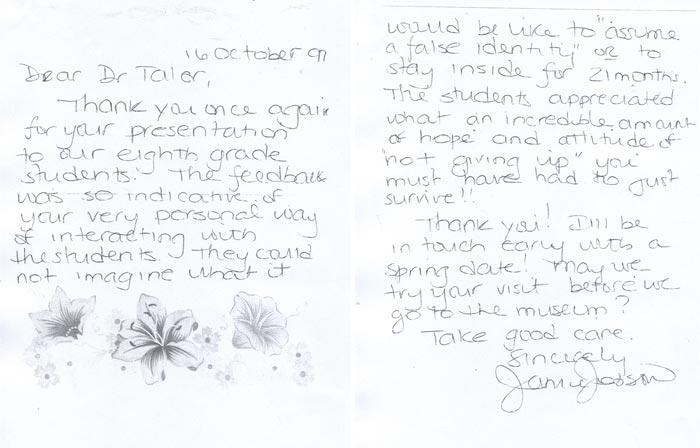 16 October 97
Dear Dr Taler,
Thank you once again
for your presentation
to our eighth grade
students. The feedback
was so indicative of
your very personal way
of interacting with
the students. They could
not imagine what it
would be like to "assume
a false identity" or to
stay inside for 21 months.
The students appreciated
what an incredible amount
of hope and attitude of
"not giving up" you
must have had to just
survive!!
Thank you! I'll be
in touch early with a
spring date! May we
try your visit before we
go to the museum?
Take good care.
Sincerely